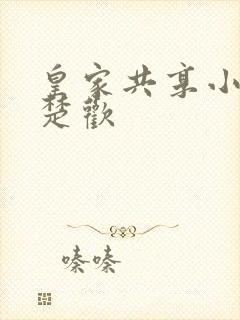 皇家共享小
楚歡
嗪嗪